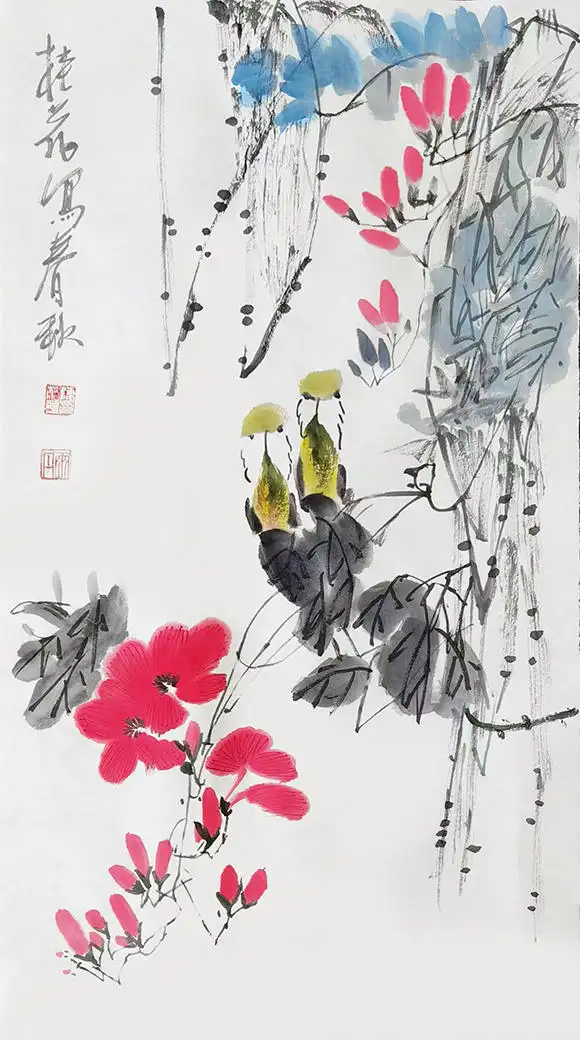 桂花寫春歌